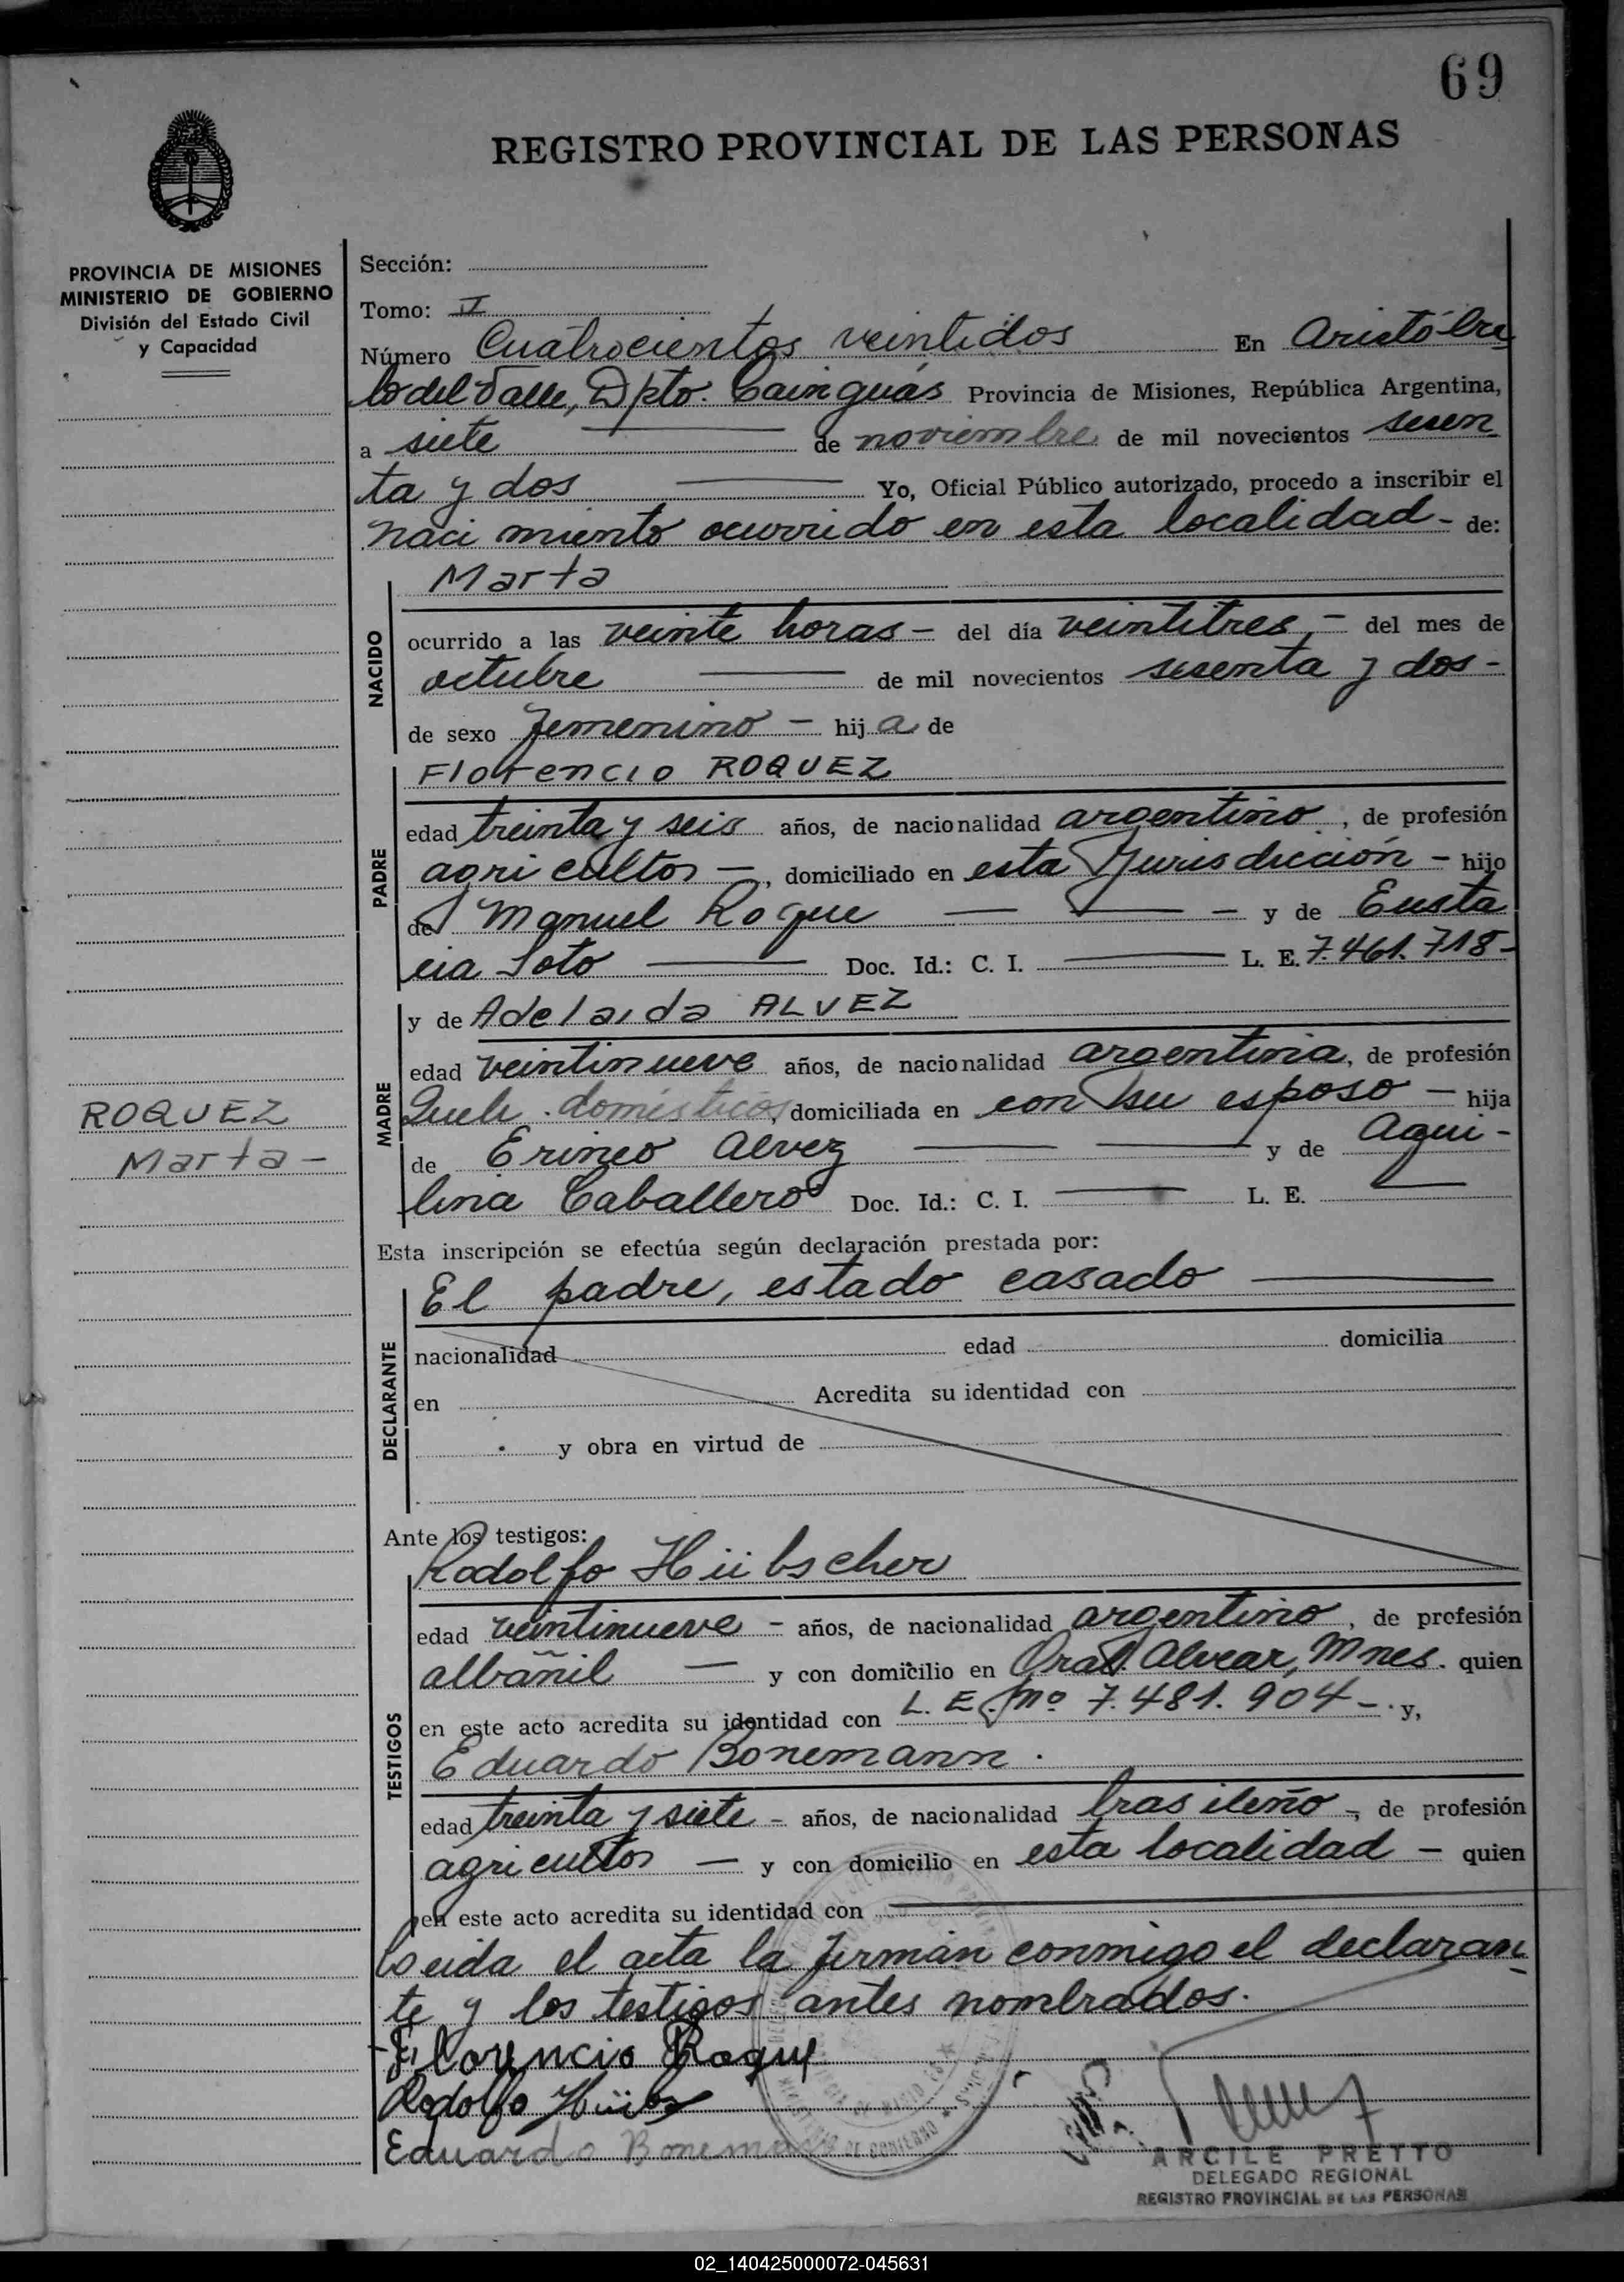 69
REGISTRO PROVINCIAL DE LAS PERSONAS
PROVINCIA DE MISIONES
MINISTERIO DE GOBIERNO
División del Estado Civil
y Capacidad
Sección:
Tomo: II
Número Cuatrocientos veintidos En Aristóbu
lo del Valle, Dpto. Cainguás Provincia de Misiones, República Argentina,
a siete de noviembre de mil novecientos sesen
ta y dos Yo, Oficial Público autorizado, procedo a inscribir el
naci miento ocurrido en esta localidad - de:
NACIDO
Marta
ocurrido a las veinte horas - del día veintitres, - del mes de
octubre de mil novecientos sesenta y dos -
de sexo femenino - hij a de
PADRE
Florencio ROQUEZ
edad treinta y seis años, de nacionalidad argentino, de profesión
agricultor -, domiciliado en esta Jurisdicción - hijo
de Manuel Roque - y de Eusta
cia Soto Doc. Id.: C. I. L. E. 7.461.718-
MADRE
y de Adelaida ALVEZ
edad veintinueve años, de nacionalidad argentina, de profesión
Queh. domésticos, domiciliada en con su esposo - hija
de Erineo Alvez y de Aqui-
lina Caballero Doc. Id.: C. I. L. E.
ROQUEZ
Marta -
Esta inscripción se efectúa según declaración prestada por:
DECLARANTE
El padre, estado casado
nacionalidad edad domicilia
en Acredita su identidad con
y obra en virtud de
Ante los testigos:
TESTIGOS
Rodolfo Hübscher
edad veintinueve - años, de nacionalidad argentino, de profesión
albañil - y con domicilio en Gral. Alvear, Mnes. quien
en este acto acredita su identidad con L. E. Nº 7.481.904 -. y,
Eduardo Bonemann.
edad treinta y siete - años, de nacionalidad brasileño -, de profesión
agricultor - y con domicilio en esta localidad - quien
en este acto acredita su identidad con
Leida el acta la firman conmigo el declaran
te y los testigos antes nombrados.
Florencio Roque
Rodolfo Hübs
Eduardo Bonemann
ARCILE PRETTO
DELEGADO REGIONAL
REGISTRO PROVINCIAL DE LAS PERSONAS
02_140425000072-045631